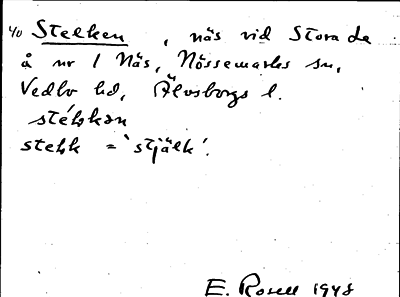 40 Stelken, näs vid Stora de
å nr 1 Näs, Nössemarks sn,
Vedbo hd, Älvsborgs l.
stélkən
stelk = 'stjälk'.
E. Rosell 1948